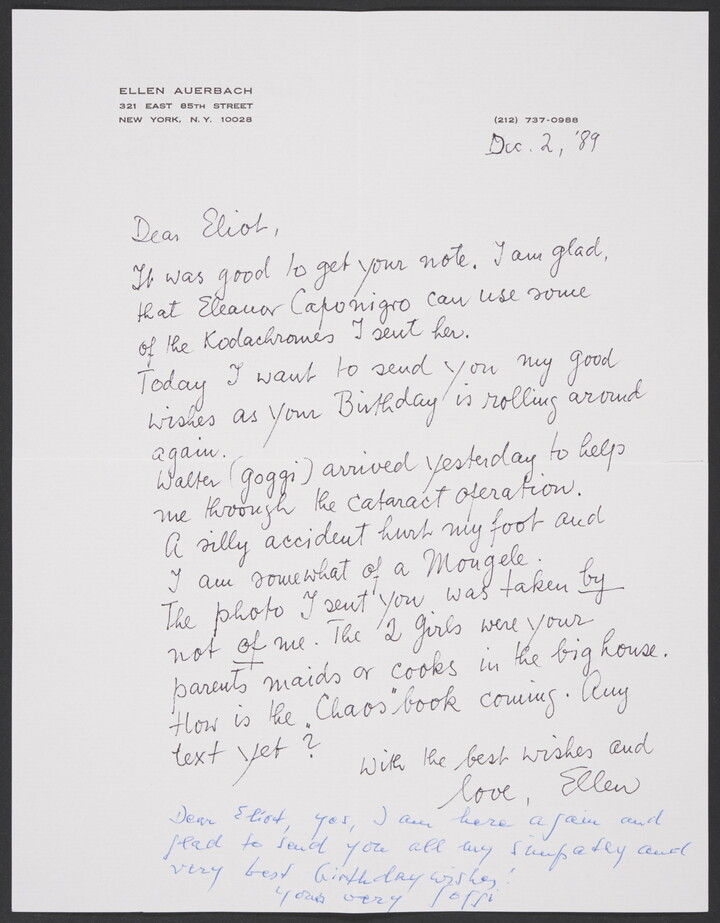 ELLEN AUERBACH
321 EAST 85TH STREET
NEW YORK, N. Y. 10028
(212) 737-0988
Dec. 2, '89
Dear Eliot,
It was good to get your note. I am glad,
that Eleanor Caponigro can use some
of the Kodachromes I sent her.
Today I want to send you my good
wishes as your Birthday is rolling around
again.
Walter (Goggi) arrived yesterday to help
me through the cataract operation.
A silly accident hurt my foot and
I am somewhat of a Mongele.
The photo I sent you was taken by
not of me. The 2 girls were your
parents maids or cooks in the big house.
How is the „Chaos" book coming. Any
text yet?
With the best wishes and
love, Ellen
Dear Eliot, yes, I am here again and
glad to send you all my simpathy and
very best birthdaywishes!
Yours very Goggi